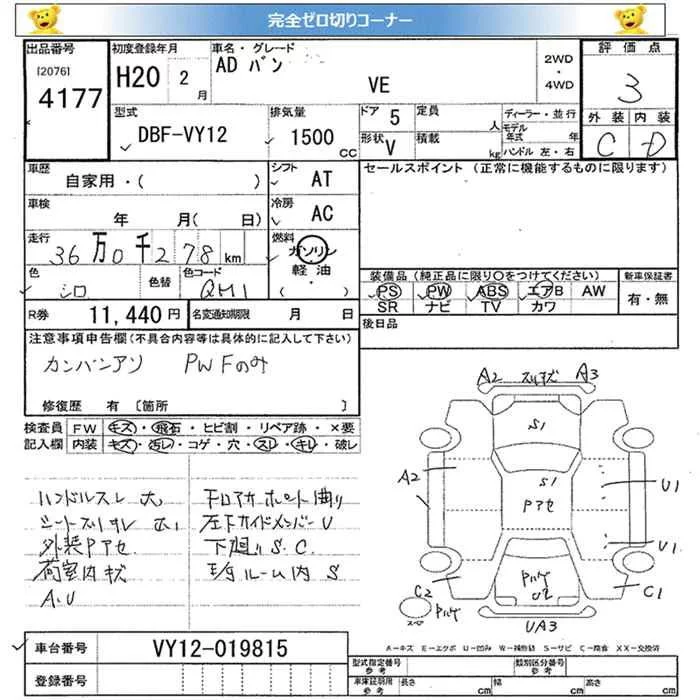 完全ゼロ切りコーナー
出品番号
[2076]
4177
初度登録年月
H20 2月
車名・グレード
AD バン
VE
2WD
・
4WD
評価点
3
外装 内装
C D
型式
DBF-VY12
排気量
1500
CC
ドア 5
定員
人
形状 V
積載
kg
ディーラー・並行
モデル年式 年
ハンドル 左・右
車歴
自家用・( )
シフト
AT
車検
年 月( 日)
冷房
AC
走行
36万0千278km
燃料
ガソリン
軽油
( )
色
シロ
色替
色コード
QM1
R券 11,440円
名変通知期限 月 日
セールスポイント (正常に機能するものに限ります)
装備品 (純正品に限り○をつけてください)
PS PW ABS エアB AW
SR ナビ TV カワ
新車保証書
有・無
後日品
注意事項申告欄(不具合内容等は具体的に記入して下さい)
カンバンアリ PW Fのみ
修復歴 有 〔箇所 〕
検査員記入欄
FW キズ・飛石・ヒビ割・リペア跡・×要
内装 キズ・汚レ・コゲ・穴・スレ・キレ・破レ
ハンドルスレ 大
シートスリキレ 大
外装Pアセ
荷室内キズ
A.U
下回りS.C.
S
A2 スリキズ A3
S1
A2
S1
Pアセ
U1
U1
C2
C1
Pハゲ
U2
Pハゲ
UA3
A-キズ E-エクボ U-凹み W-補修跡 S-サビ C-腐食 XX-交換済
車台番号 VY12-019815
登録番号
型式指定番号
参考
類別区分番号
参考
車庫証明用
参考
長さ cm
幅 cm
高さ cm